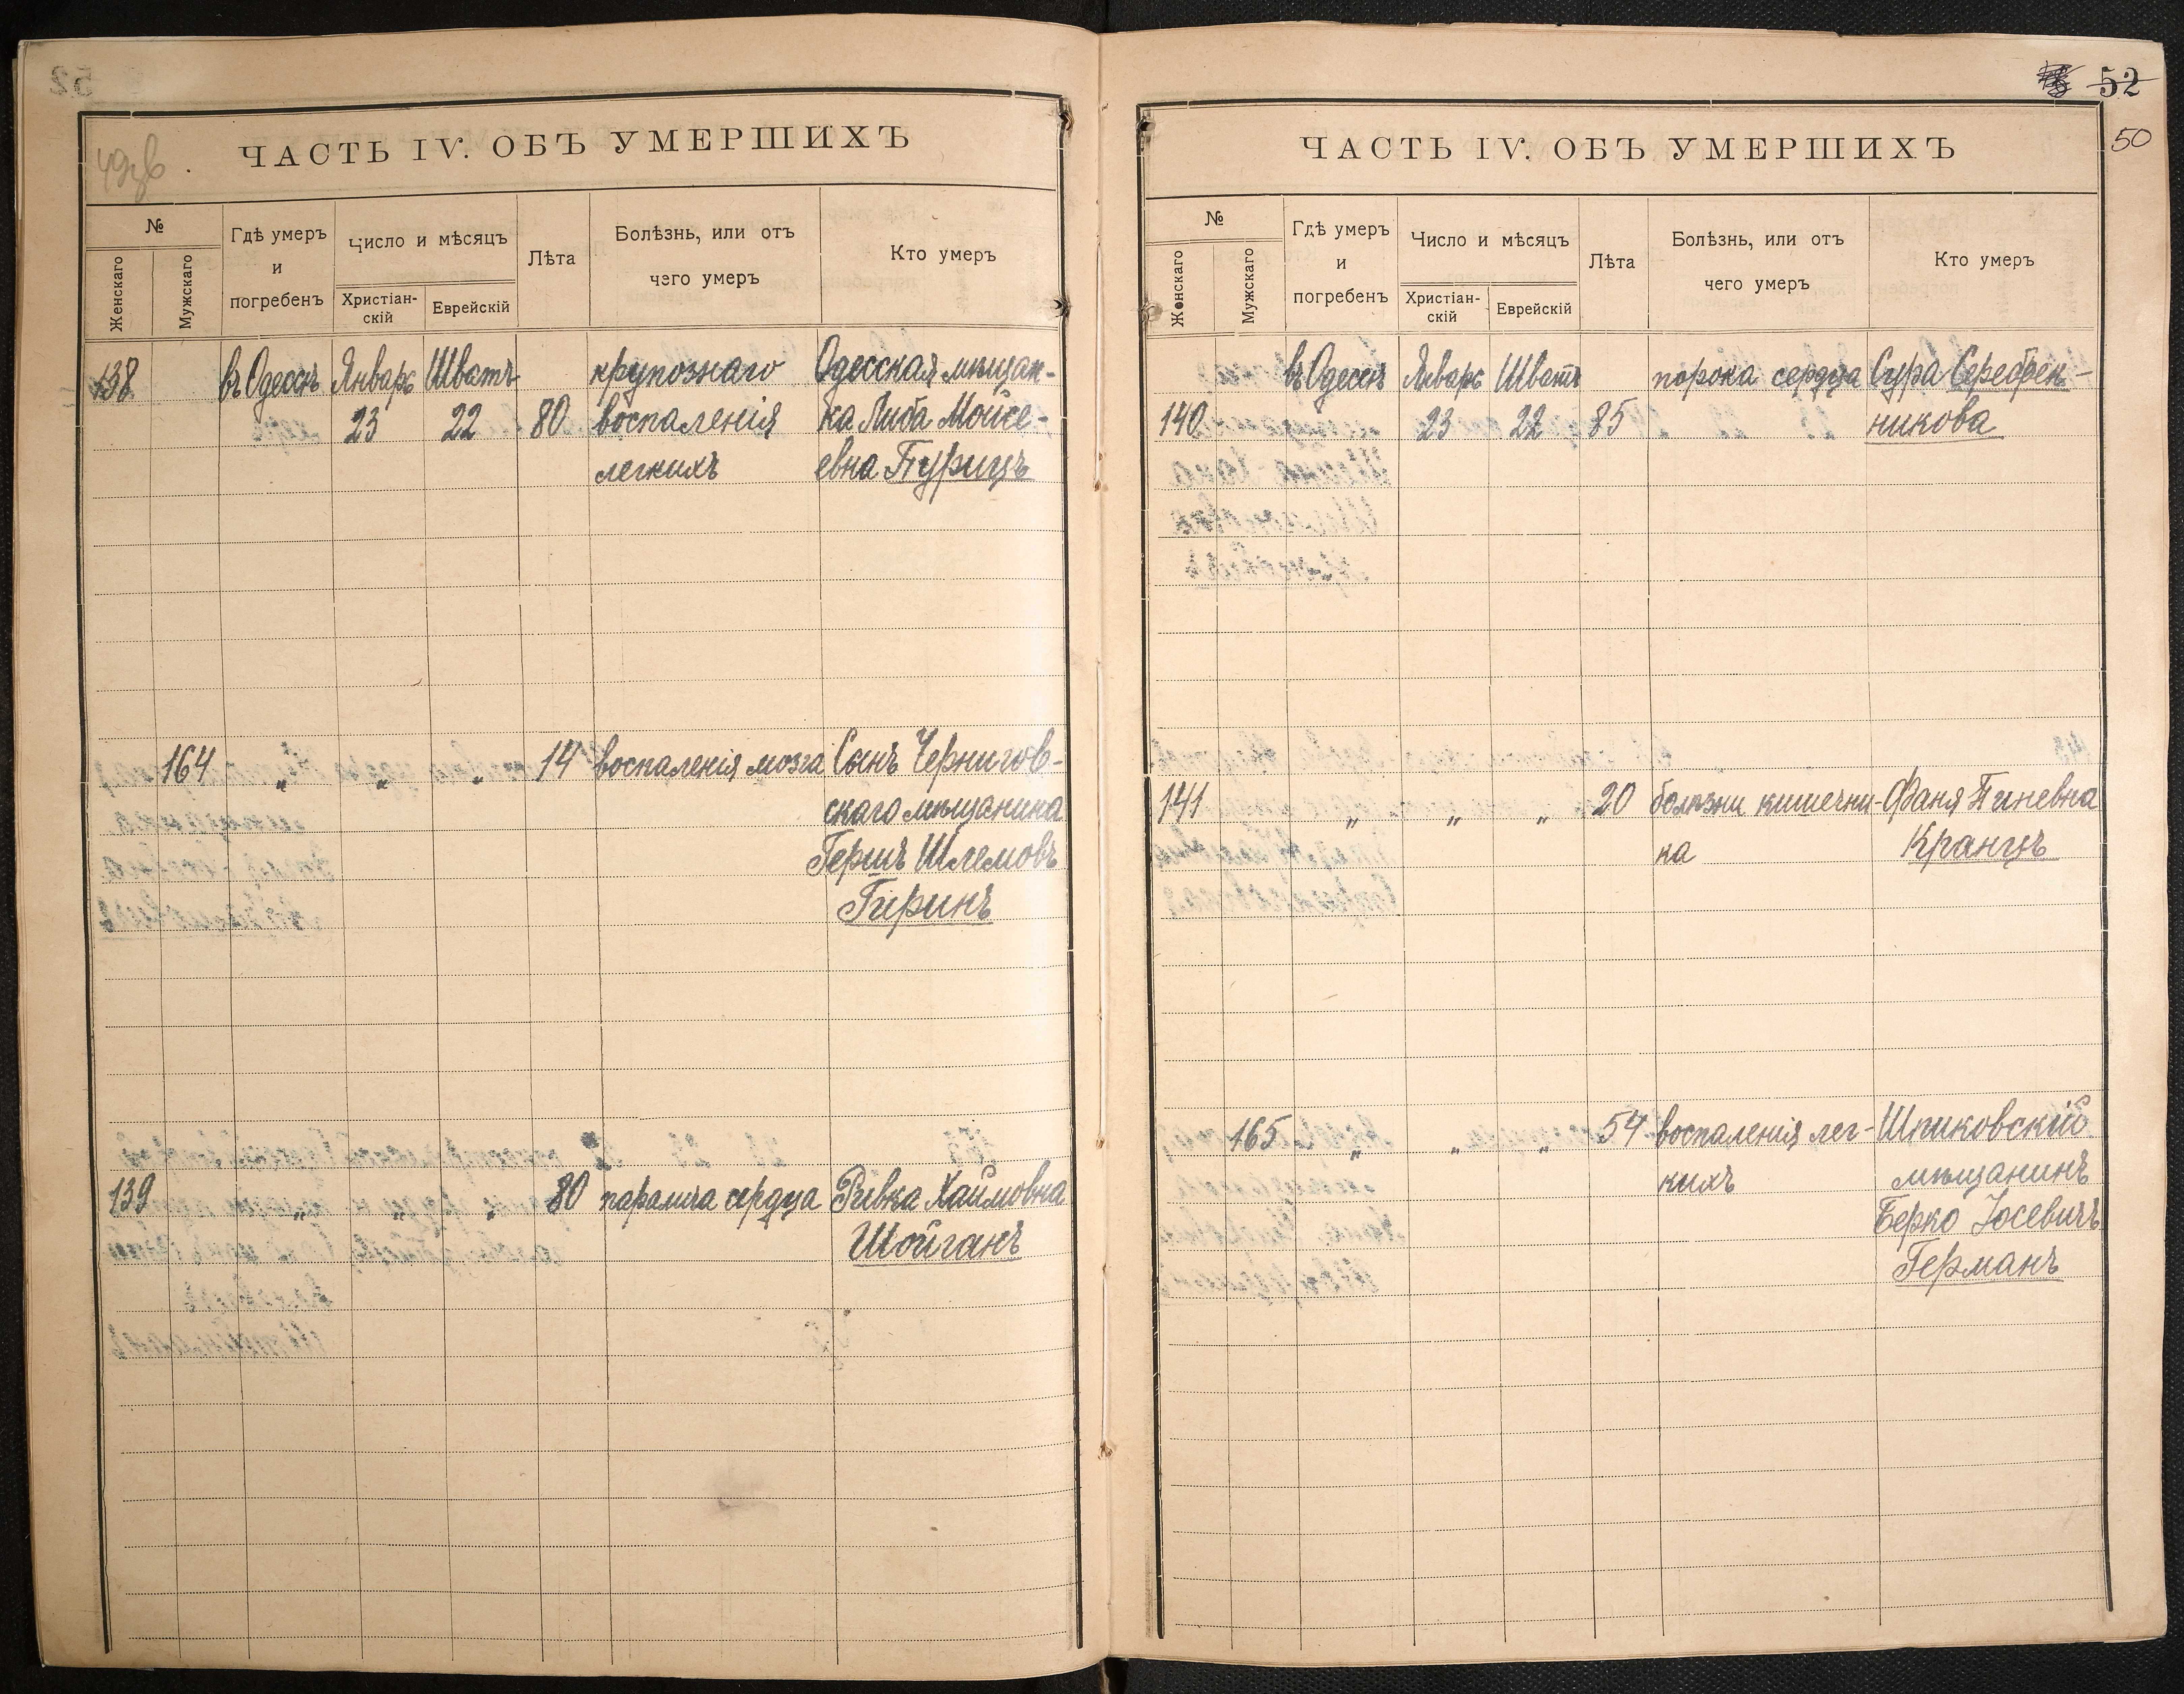 49 зв
ЧАСТЬ IV. ОБЪ УМЕРШИХЪ
№
Женскаго
Мужскаго
Гдѣ умеръ
и
погребенъ
Число и мѣсяцъ
Христіан-
скій
Еврейскій
Лѣта
Болѣзнь, или отъ
чего умеръ
Кто умеръ
138 въ Одессѣ Январь Шватъ крупознаго Одесская мѣщан-
23 22 80 воспаленія ка Либа Мойсе-
легкихъ евна Пурицъ
164 „ „ „ 14 воспаленія мозга Сынъ Чернигов-
скаго мѣщанина
Гершъ Шлемовъ
Гиринъ
139 „ „ „ 80 паралича сердца Ривка Хаимовна
Шойганъ
52
50
ЧАСТЬ IV. ОБЪ УМЕРШИХЪ
№
Женскаго
Мужскаго
Гдѣ умеръ
и
погребенъ
Число и мѣсяцъ
Христіан-
скій
Еврейскій
Лѣта
Болѣзнь, или отъ
чего умеръ
Кто умеръ
въ Одессѣ Январь Шватъ порока сердца Сура Серебрен-
140 23 22 85 никова
141 „ „ „ 20 болѣзни кишечни- Фаня Пиневна
ка Кранцъ
165 „ „ „ 54 воспаленія лег- Шпиковскій
кихъ мѣщанинъ
Берко Іосевичъ
Германъ